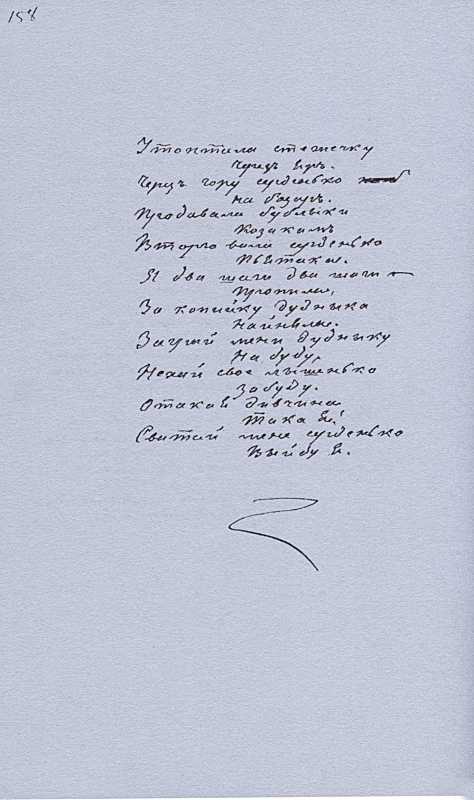 158
Утоптала стежечку
Черезъ Яръ.
Черезъ гору серденько
на базаръ.
Продавала бублыки
Козакамъ
Вторговала серденько
Пьятака.
Я два шаги два шаги
Пропыла,
За копійку дудныка
Найняла.
Заграй мени дуднику
На дуду,
Нехай свое лышенько
Забуду.
Отакая дивчина
Така я!
Сватай мене серденько
Выйду я.